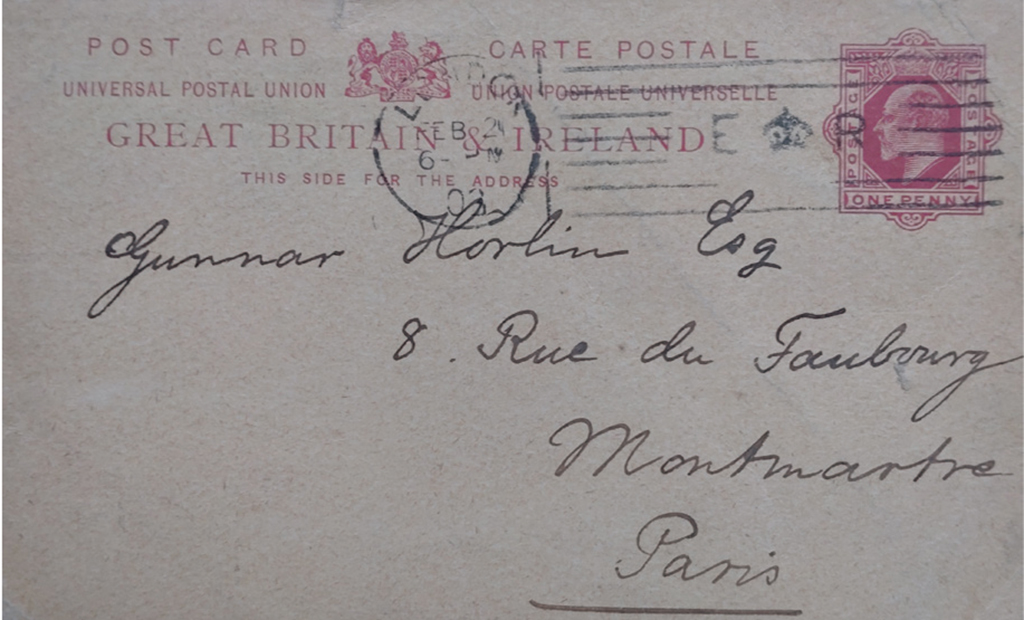 POST CARD CARTE POSTALE
UNIVERSAL POSTAL UNION UNION POSTALE UNIVERSELLE
GREAT BRITAIN & IRELAND
THIS SIDE FOR THE ADDRESS
POSTAGE POSTAGE
ONE PENNY
LONDON
FEB 24
6- PM
03
E R
Gunnar Horlin Esq
8. Rue du Faubourg
Montmartre
Paris